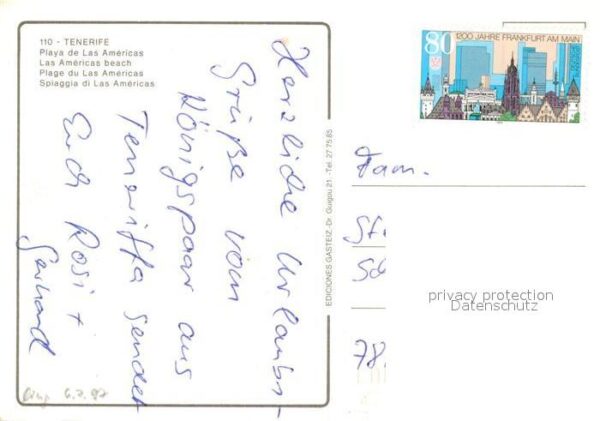 110 - TENERIFE
Playa de Las Américas
Las Américas beach
Plage du Las Américas
Spiaggia di Las Américas
Herzliche Urlaubs-
Grüße vom
Königspaar aus
Teneriffa sendet
Euch Rosi +
Gerhard
6.2.97
EDICIONES GASTEIZ.-Dr. Guigou 21 -Tel. 27 75 85
80
1200 JAHRE FRANKFURT AM MAIN
Fam.
St.
78.
privacy protection
Datenschutz